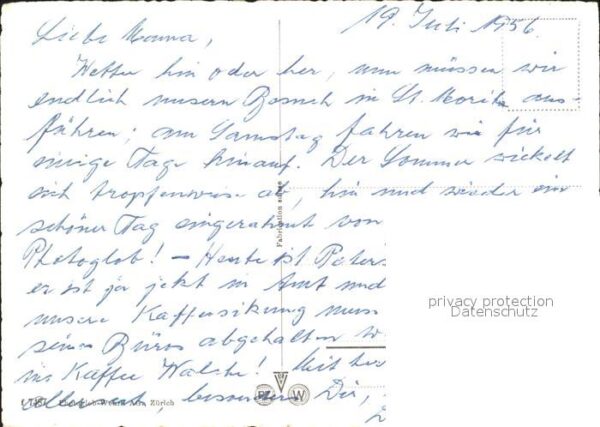 19. Juli 1956.
Liebe Mama,
Wetter hin oder her, nun müssen wir
endlich unsern Besuch in St. Moritz aus-
führen; am Samstag fahren wir für
einige Tage hinauf. Der Sommer wickelt
sich tropfenweise ab, hin und wieder ein
schöner Tag eingerahmt von
Photoglob! – Heute ist Peters
er ist ja jetzt in Amt und
unsere Kaffeesitzung muss
seinem Büro abgehalten w
ins Kaffee Wälchi! Mit her
besonders Dir,
Fabrication suisse
privacy protection
Datenschutz
Photoglob-Wehrli A.G. Zürich
P W